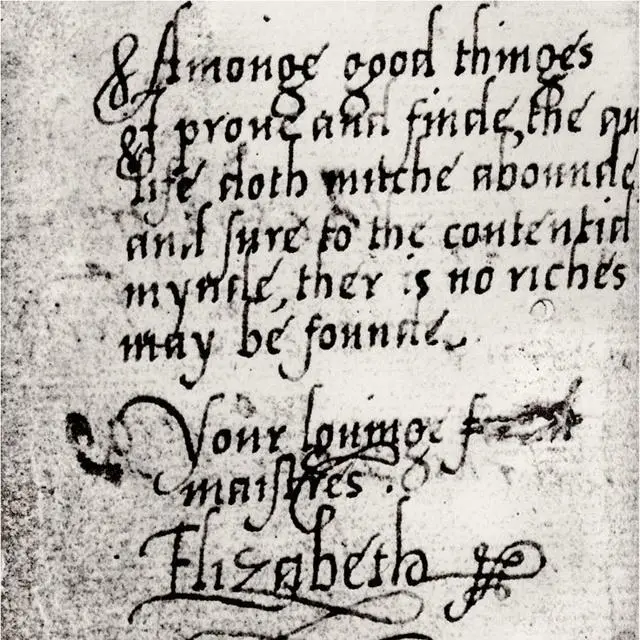 Amonge good thinges
I prove and finde, the qu
life doth mutche abounde
and sure to the contentid
mynde, ther is no riches
may be founde.
Your lovinge
maistres.
Elizabeth